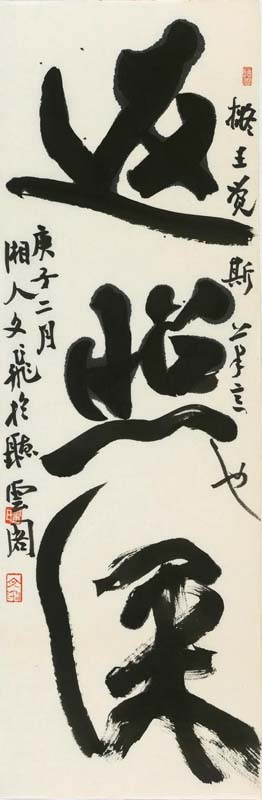 返照深
擬王覺斯筆意也
庚子二月
湘人文龍於聽雲閣